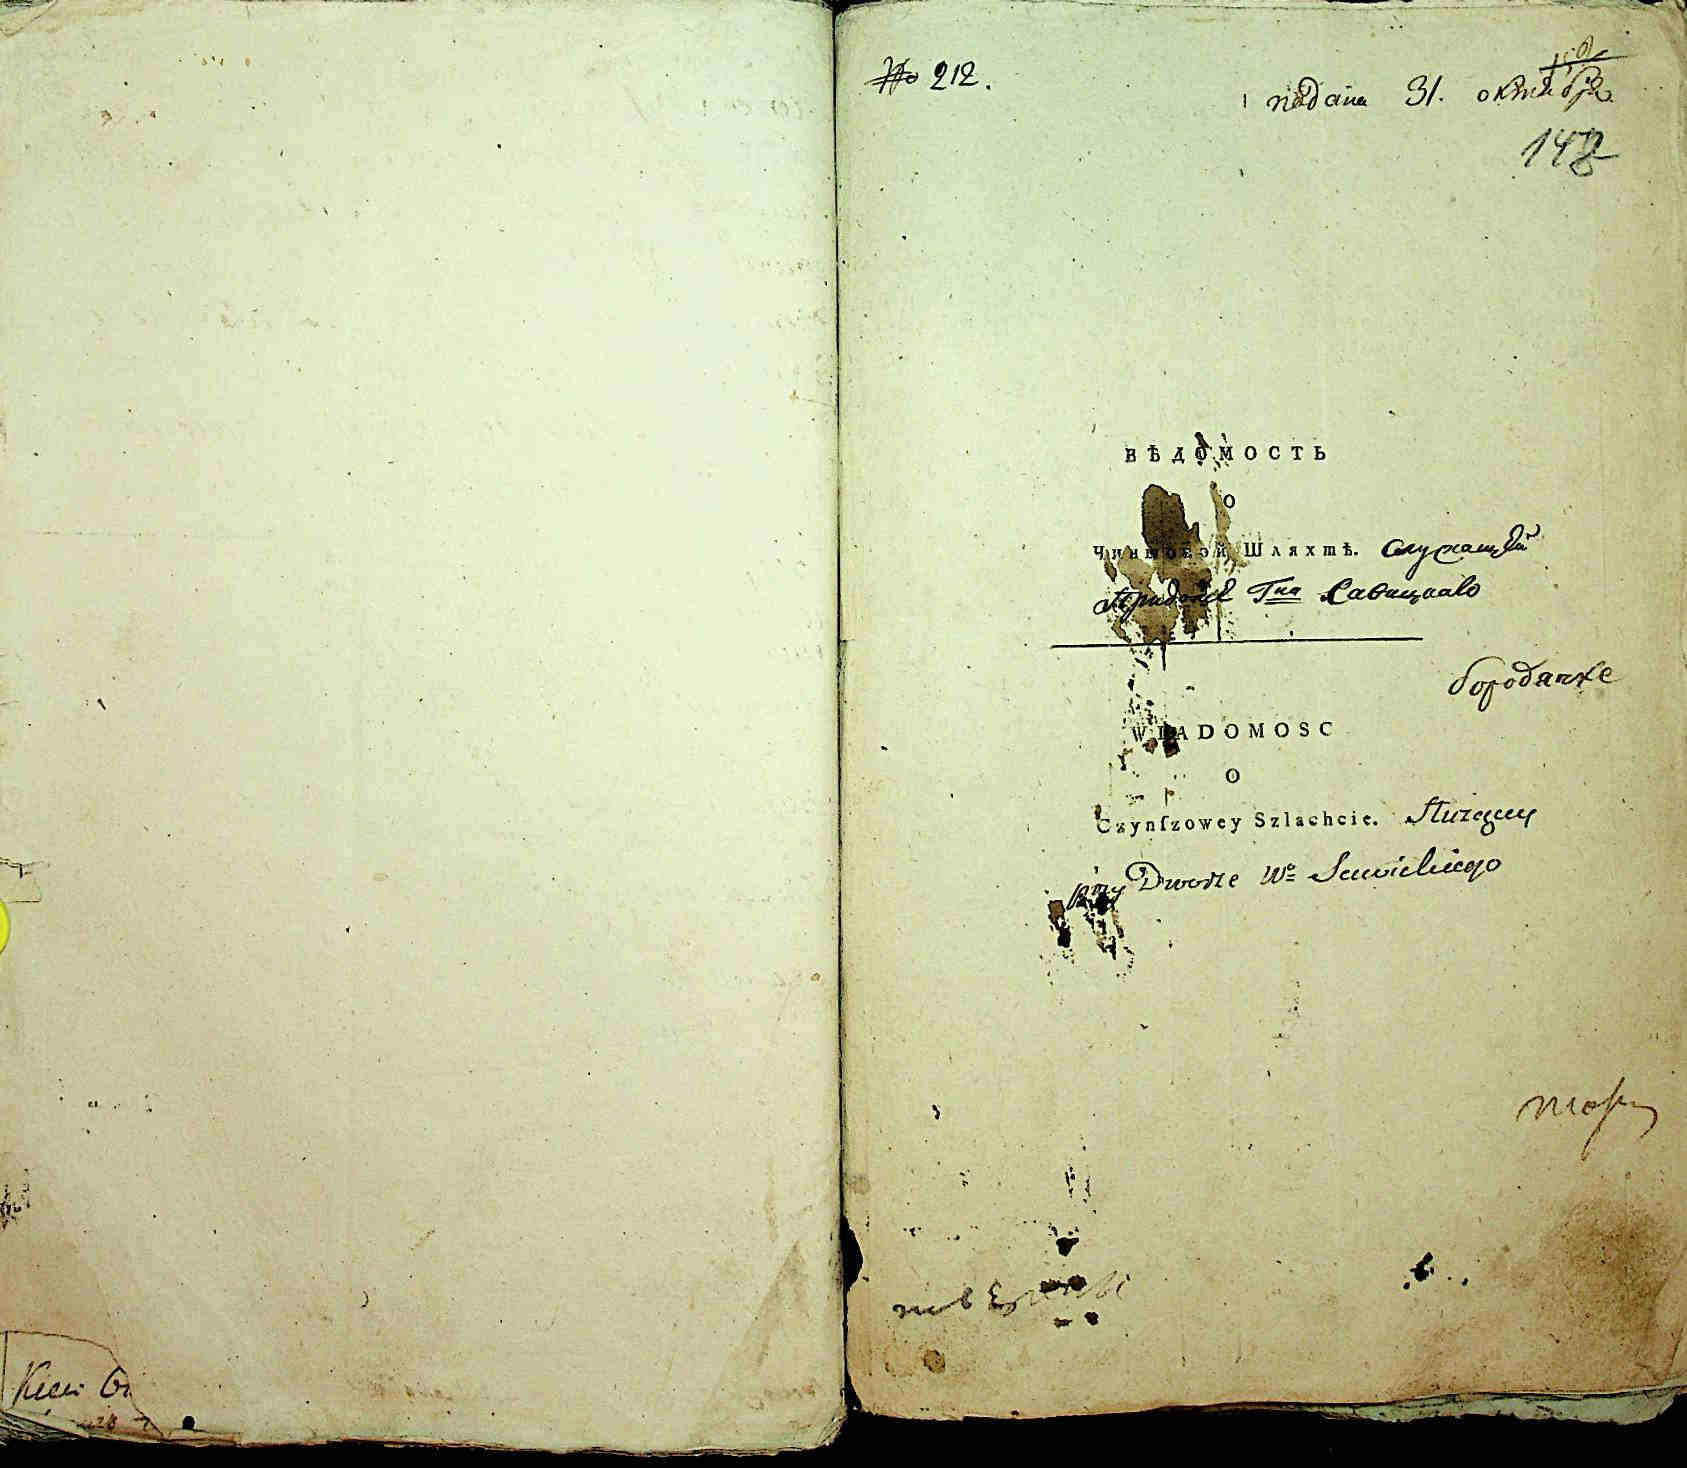 № 212.
подана 31. октября
ВѢДОМОСТЬ
О
Чиншовой Шляхтѣ. служащей
При дворѣ Гна Савицкаго
бородянке
WIADOMOSC
O
Czynſzowey Szlachcie. Służącey
przy Dworze Wº Sawickiego